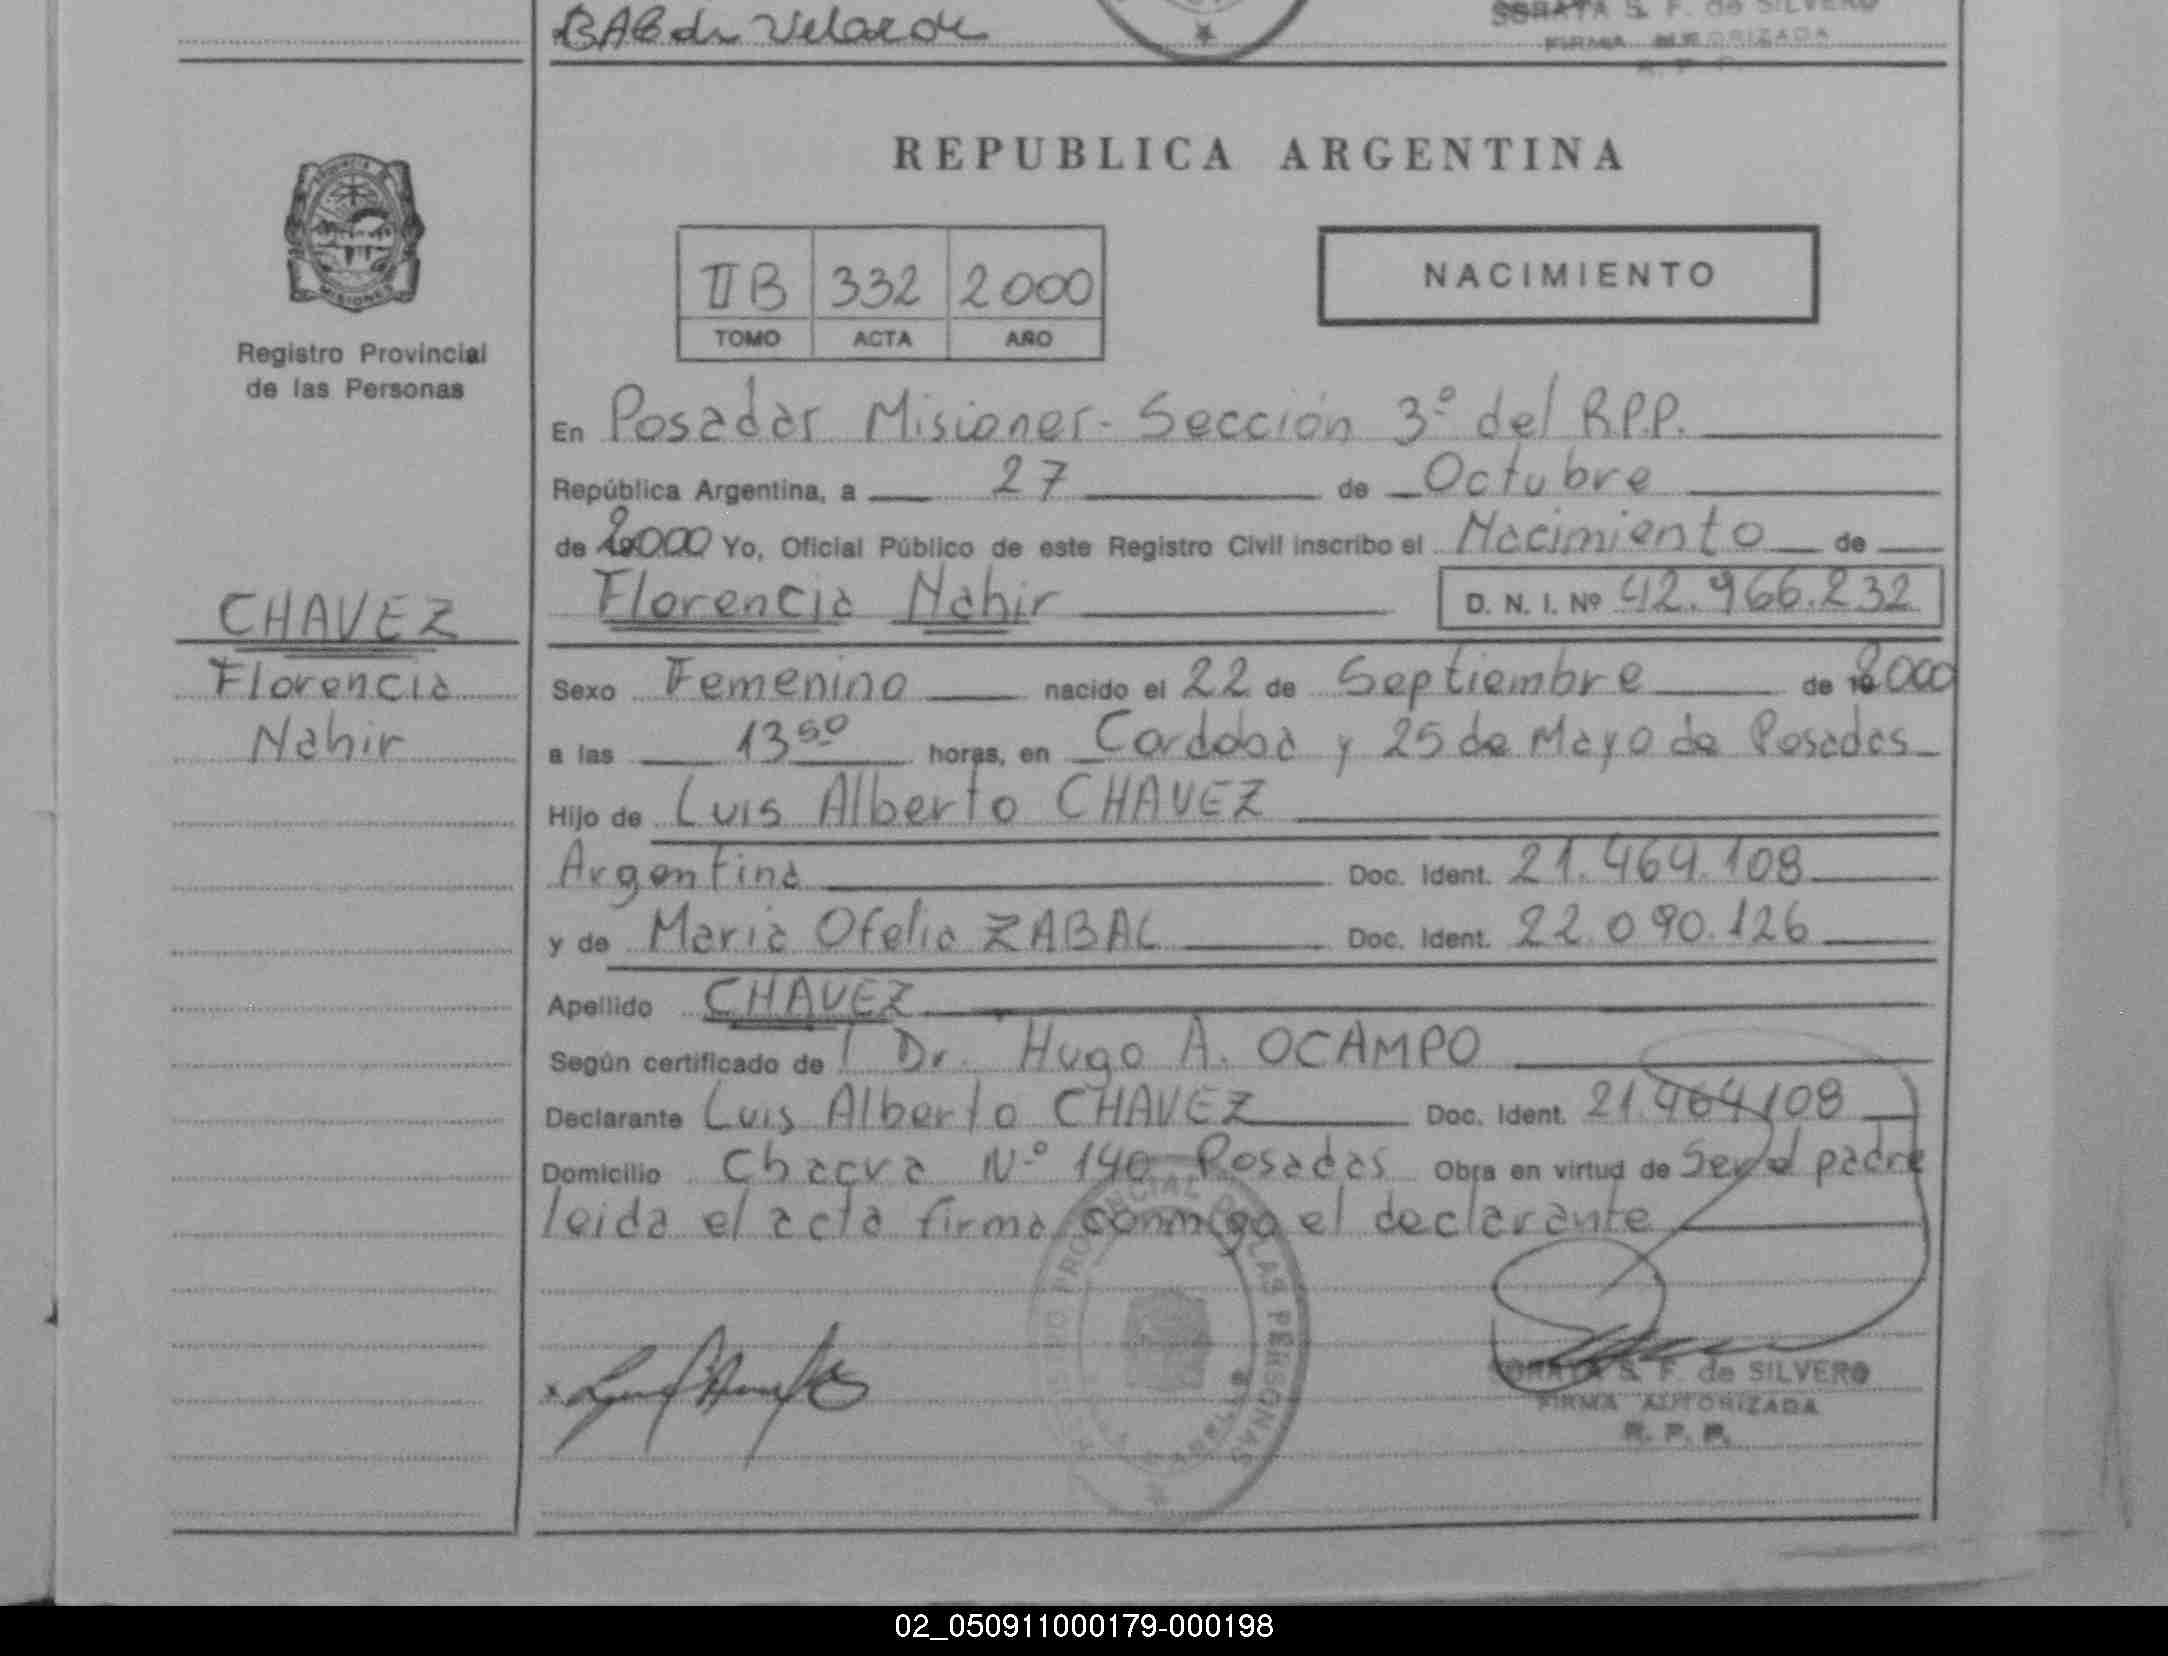 BAC de Velazde
SORAYA S. F. de SILVERO
FIRMA AUTORIZADA
R. P. P.
REPUBLICA ARGENTINA
PROVINCIA
MISIONES
Registro Provincial
de las Personas
II B 332 2000
TOMO ACTA AÑO
NACIMIENTO
En Posadas Misiones - Sección 3º del R.P.P.
República Argentina, a 27 de Octubre
de 2000 Yo, Oficial Público de este Registro Civil inscribo el Nacimiento de
Florencia Nahir D. N. I. Nº 42.966.232
CHAVEZ
Florencia
Nahir
Sexo Femenino nacido el 22 de Septiembre de 2000
a las 13 50 horas, en Cordoba y 25 de Mayo de Posadas
Hijo de Luis Alberto CHAVEZ
Argentina Doc. Ident. 21.464.108
y de Maria Ofelia ZABAL Doc. Ident. 22.090.126
Apellido CHAVEZ
Según certificado de l Dr. Hugo A. OCAMPO
Declarante Luis Alberto CHAVEZ Doc. Ident. 21.464.108
Domicilio Chacra Nº 140 Posadas Obra en virtud de Ser el padre
leida el acta firma conmigo el declarante
PROVINCIAL DE LAS PERSONAS
SORAYA S. F. de SILVERO
FIRMA AUTORIZADA
R. P. P.
02_050911000179-000198